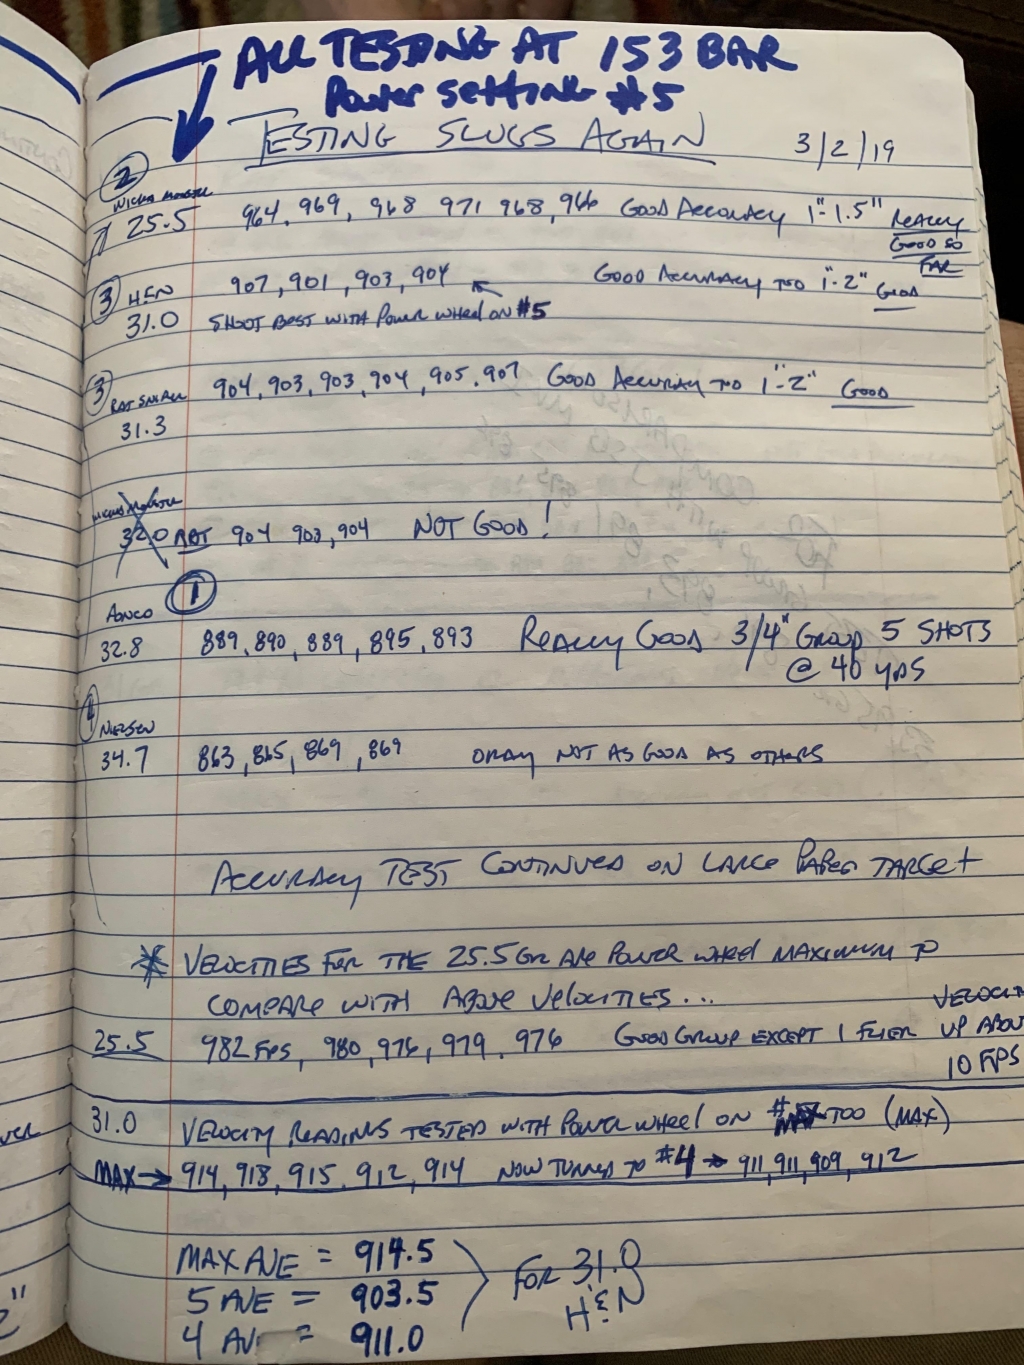 ALL TESTING AT 153 BAR
Power setting #5
TESTING SLUGS AGAIN 3/2/19
2
25.5 964, 969, 968 971 968, 966 GOOD ACCURACY 1"-1.5" REALLY
GOOD SO
FAR
3 H&N 907, 901, 903, 904 GOOD ACCURACY TOO 1"-2" GOOD
31.0 SHOOT BEST WITH POWER WHEEL ON #5
3 RAT SNIPER 904, 903, 903, 904, 905, 907 GOOD ACCURACY TOO 1"-2" GOOD
31.3
32.0 904 903, 904 NOT GOOD!
1
32.8 889, 890, 889, 895, 893 REALLY GOOD 3/4" GROUP 5 SHOTS
@ 40 YDS
4 NIELSEN
34.7 863, 865, 869, 869 OKAY NOT AS GOOD AS OTHERS
ACCURACY TEST CONTINUED ON LARGE PAPER TARGET
* VELOCITIES FOR THE 25.5 GR ARE POWER WHEEL MAXIMUM TO
COMPARE WITH ABOVE VELOCITIES...
25.5 982 FPS, 980, 976, 979, 976 GOOD GROUP EXCEPT 1 FLIER UP ABOUT
10 FPS
31.0 VELOCITY READINGS TESTED WITH POWER WHEEL ON TOO (MAX)
MAX → 914, 918, 915, 912, 914 NOW TURNED TO #4 → 911, 911, 909, 912
MAX AVE = 914.5
5 AVE = 903.5
4 AV = 911.0
FOR 31.0
H&N